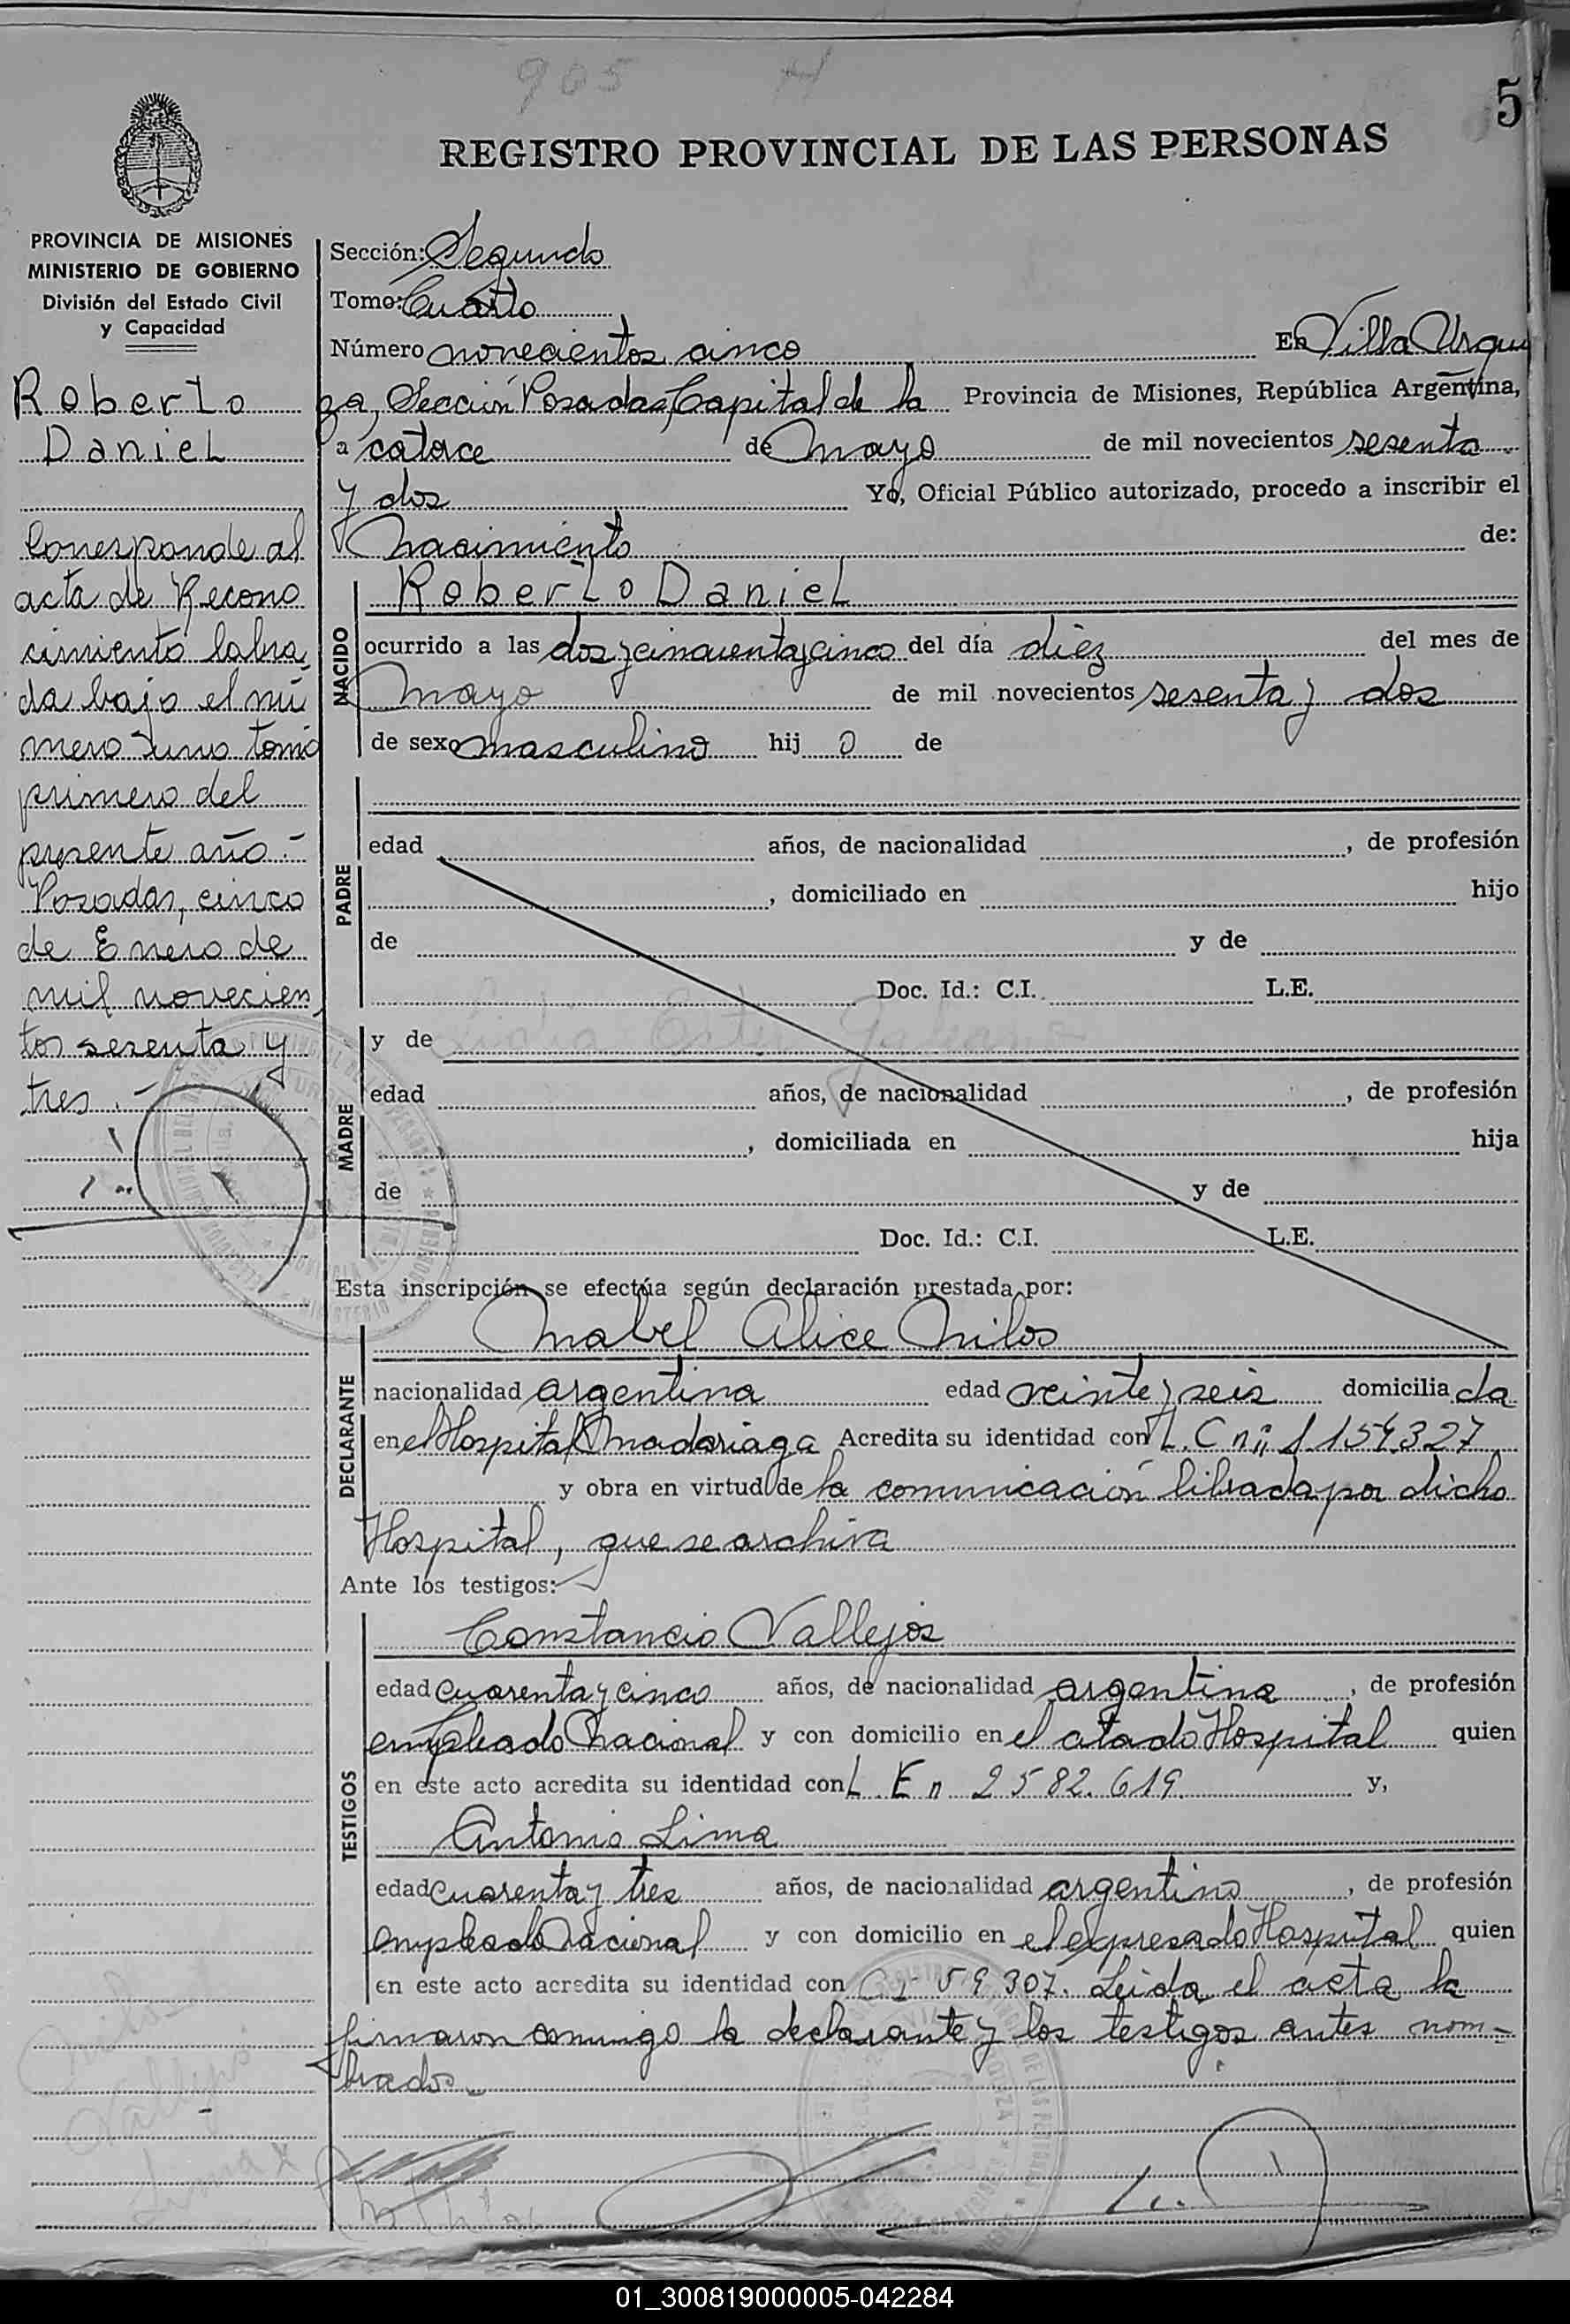 905
5
REGISTRO PROVINCIAL DE LAS PERSONAS
PROVINCIA DE MISIONES
MINISTERIO DE GOBIERNO
División del Estado Civil
y Capacidad
Roberto
Daniel
Corresponde al
acta de Recono
cimiento labra
da bajo el nú
mero uno tomo
primero del
presente año.-
Posadas, cinco
de Enero de
mil novecien
tos sesenta y
tres.-
Sección: Segundo
Tomo: Cuarto
Número novecientos cinco En Villa Urqui
za, Sección Posadas, Capital de la Provincia de Misiones, República Argentina,
a catorce de mayo de mil novecientos sesenta
y dos Yo, Oficial Público autorizado, procedo a inscribir el
Nacimiento de:
NACIDO
Roberto Daniel
ocurrido a las dos y cincuenta y cinco del día diéz del mes de
mayo de mil novecientos sesenta y dos
de sexo masculino hij o de
PADRE
edad años, de nacionalidad , de profesión
, domiciliado en hijo
de y de
Doc. Id.: C.I. L.E.
MADRE
y de Ester
edad años, de nacionalidad , de profesión
, domiciliada en hija
de y de
Doc. Id.: C.I. L.E.
Esta inscripción se efectúa según declaración prestada por:
DECLARANTE
Mabel Alice Milos
nacionalidad argentina edad veinte y seis domicilia da
en el Hospital Madariaga Acredita su identidad con L.C nº 1.154.327
y obra en virtud de la comunicación librada por dicho
Hospital, que se archiva
Ante los testigos:
TESTIGOS
Constancio Vallejos
edad cuarenta y cinco años, de nacionalidad argentina , de profesión
empleado Nacional y con domicilio en el citado Hospital quien
en este acto acredita su identidad con L.E n 2582.619 y,
Antonio Lima
edad cuarenta y tres años, de nacionalidad argentino , de profesión
empleado Nacional y con domicilio en el expresado Hospital quien
en este acto acredita su identidad con 59307. Leida el acta la
firmaron conmigo la declarante y los testigos antes nom-
brados.-
Vallejos
01_300819000005-042284